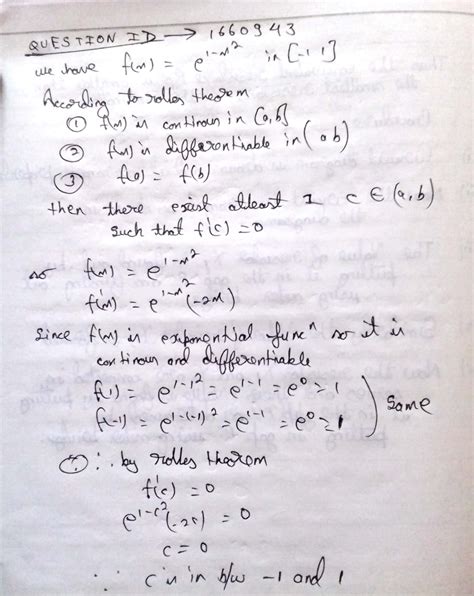 QUESTION ID → 1660943
we have f(x) = e^{1-x^2} in [-1 1]
According to rolles theorem
① f(x) is continous in [a,b]
② f(x) is differentiable in (a b)
③ f(a) = f(b)
then there exist atleast 1 c ∈ (a, b)
such that f'(c) = 0
so f(x) = e^{1-x^2}
f'(x) = e^{1-x^2} (-2x)
Since f(x) is exponential func^n so it is
continous and differentiable
f(1) = e^{1-1^2} = e^{1-1} = e^0 = 1
f(-1) = e^{1-(-1)^2} = e^{1-1} = e^0 = 1 ) Same
∴ by rolles theorem
f'(c) = 0
e^{1-c^2} (-2c) = 0
c = 0
∴ c is in b/w -1 and 1